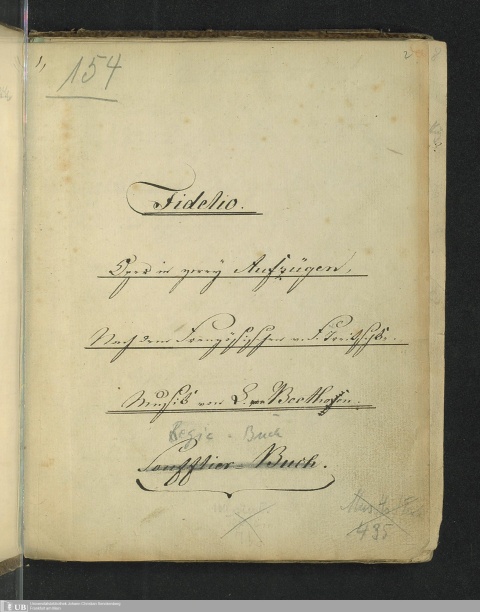 1,
154
2
Fidelio.
Oper in zwey Aufzügen,
Nach dem Französischen v. F. Treitschke.
Musik von L. van Beethofen.
Regie - Buch
Soufflier-Buch.
495
UB
Universitätsbibliothek Johann Christian Senckenberg
Frankfurt am Main